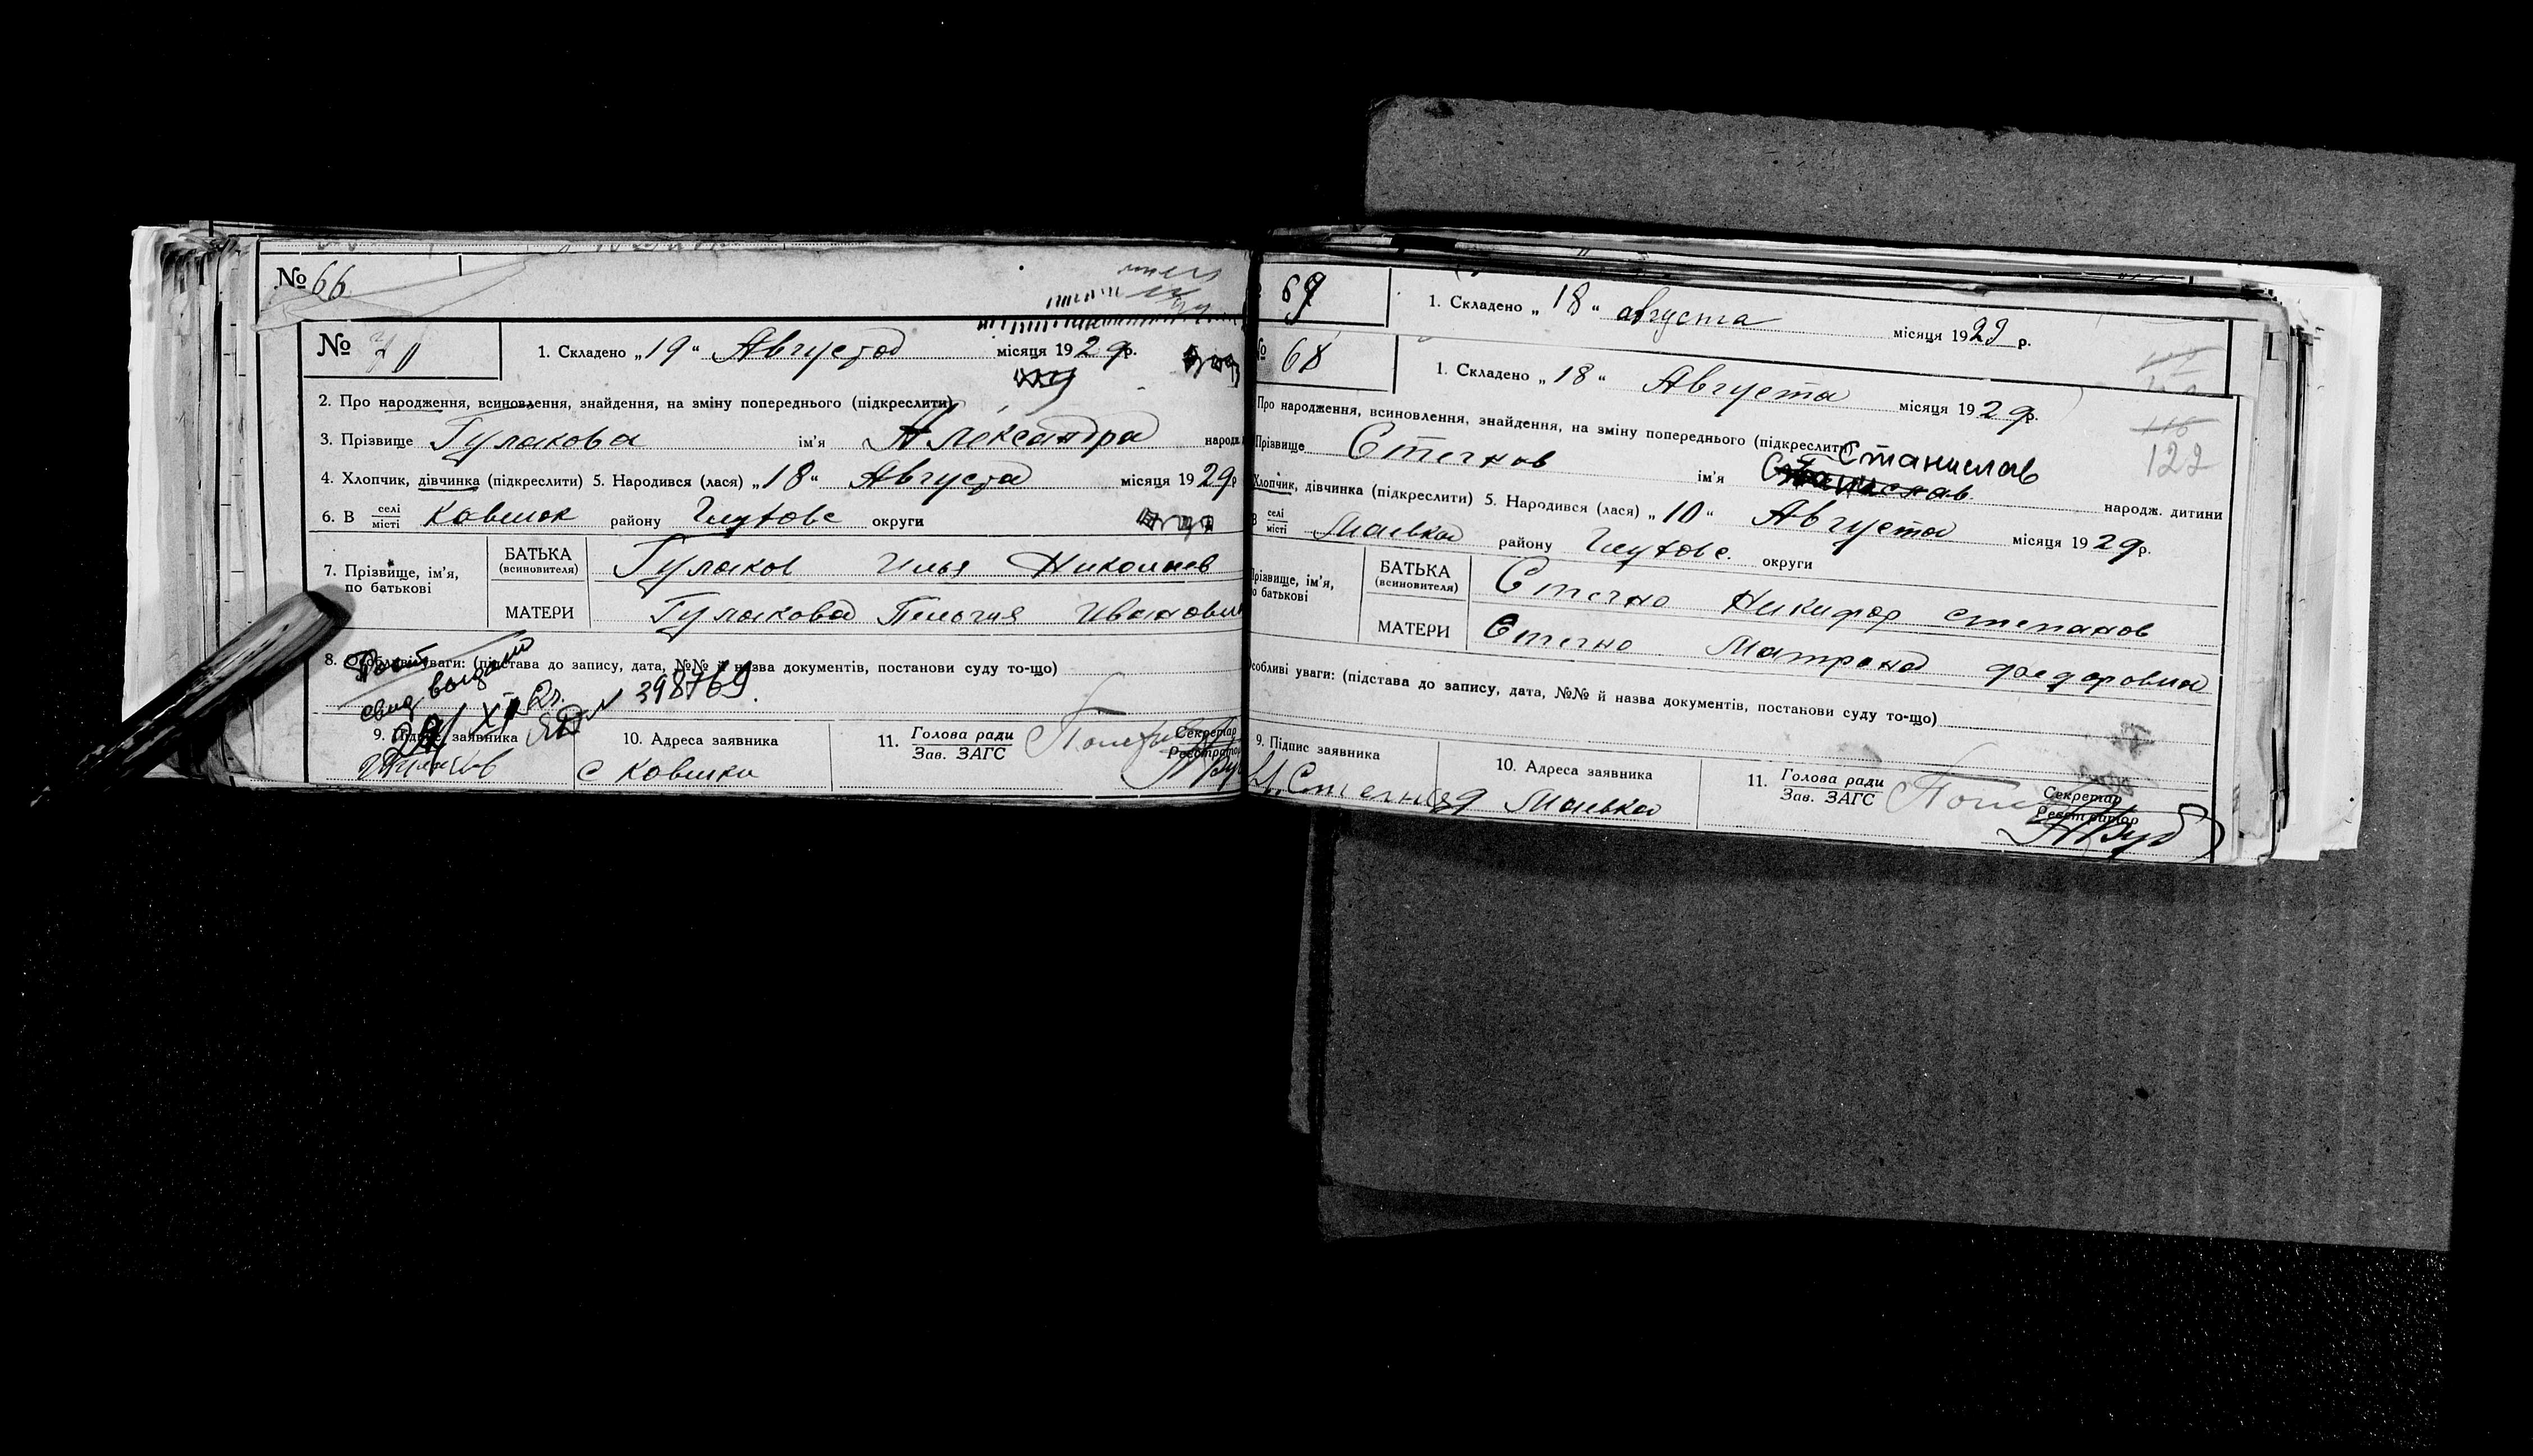 № 66
№ 70
1. Складено „19“ Августа місяця 1929р.
2. Про народження, всиновлення, знайдення, на зміну попереднього (підкреслити)
3. Прізвище Гулакова ім'я Александра народж
4. Хлопчик, дівчинка (підкреслити) 5. Народився (лася) „18“ Августа місяця 1929р
6. В селі місті Ковшок району Глухове округи
7. Прізвище, ім'я, по батькові
БАТЬКА (всиновителя) Гулаков Илья Николаев
МАТЕРИ Гулакова Пелагия Ивановн
8. Особливі уваги: (підстава до запису, дата, №№ й назва документів, постанови суду то-що)
свид выдано
398769.
9. Підпис заявника
10. Адреса заявника
с Ковшки
11. Голова ради Зав. ЗАГС
Секретар Реєстратор
69
1. Складено „18“ августа місяця 1929 р.
№ 68
1. Складено „18“ Августа місяця 1929р.
122
Про народження, всиновлення, знайдення, на зміну попереднього (підкреслити)
Прізвище Стегнов ім'я Станислав народж. дитини
Хлопчик, дівчинка (підкреслити) 5. Народився (лася) „10“ Августа місяця 1929р.
В селі місті Маевка району Глухове. округи
Прізвище, ім'я, по батькові
БАТЬКА (всиновителя) Стегно Никифор степанов
МАТЕРИ Стегно Матрена федоровна
Особливі уваги: (підстава до запису, дата, №№ й назва документів, постанови суду то-що)
9. Підпис заявника
10. Адреса заявника
Маевка
11. Голова ради Зав. ЗАГС
Секретар Реєстратор